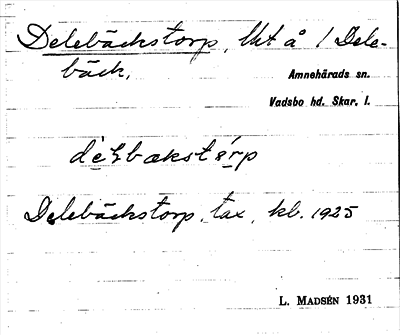 Delebäckstorp, Ukt å 1 Dele-
bäck.
Amnehärads sn.
Vadsbo hd. Skar. l.
Delebäckstorp, tax, kb. 1925
L. MADSÉN 1931